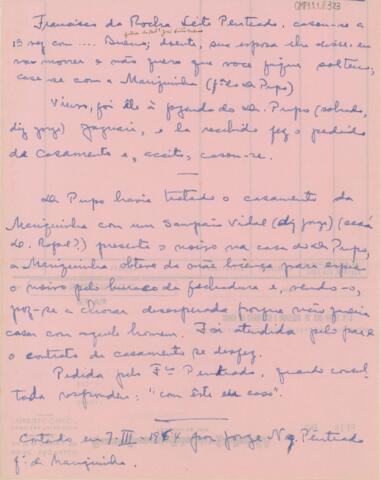 CMP1.1.1.8.323
Francisco da Rocha Leite Penteado, casou-se a
1ª vez com .... Bueno; doente, sua esposa lhe disse: eu
vou morrer e não quero que voce fique solteiro,
case-se com a Mariquinha (fª do Dr Pupo)
Viuvo, foi êle à fazenda do Dr. Pupo (sobrado,
diz Jorge) Jaguari, e lá recebido fez o pedido
de casamento e, aceito, casou-se.
Dr Pupo havia tratado o casamento da
Mariquinha com um Sampaio Vidal (diz Jorge) (será
do. Rafael?) presente o noivo na casa do Dr Pupo,
a Mariquinha obteve da mãe licença para espiar
o noivo pelo buraco da fechadura e, vendo-o,
poz-se a chorar desesperada porque não queria
casar com aquele homem. Foi atendida pelo pai e
o contrato de casamento se desfez.
Pedida pelo Fco Penteado, quando consul-
tada respondeu: "com êste eu caso".
Contado em 7.III.1964 por Jorge Nog. Penteado
fº. de Mariquinha.